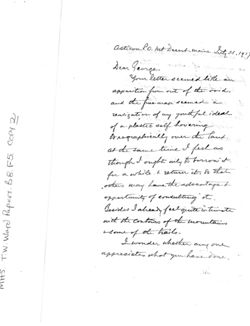 Asticou P.O. Mt Desert Maine July 22, 19
Dear George.
Your letter seemed like an
apparition from out of the void.
and the fine map seemed a
realization of my youthful ideal
of a plastic self hovering
topographically over the land.
At the same time I feel as
though I ought only to borrow it
for a while & return it, so that
others may have the advantage &
opportunity of consulting it.
Besides I already feel quite intimate
with the contours of the mountains
& some of the trails.
I wonder whether any one
appreciates what you have done.
MHS. T.W. Ward Papers B6 F5 Copy 2